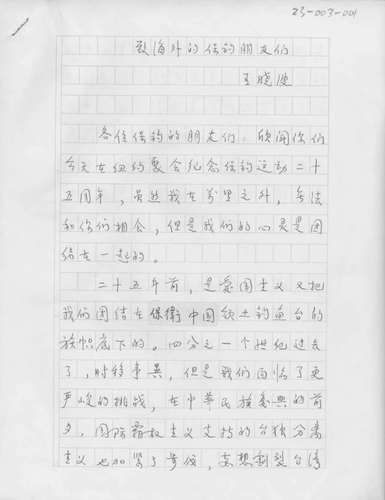 23-003-001
致海外的保钓朋友们
王晓波
各位保钓的朋友们：欣闻你们
今天在纽约聚会纪念保钓运动二十
五周年，虽然我在万里之外，无法
和你们相会，但是我们的心灵是团
结在一起的。
二十五年前，是爱国主义又把
我们团结在保衛中国领土钓鱼台的
旗帜底下的。四分之一个世纪过去
了，时移事異，但是我们面临了更
严峻的挑战，在中華民族復興的前
夕，国际霸权主义支持的台独分离
主义也加紧了步伐，妄想割裂台湾